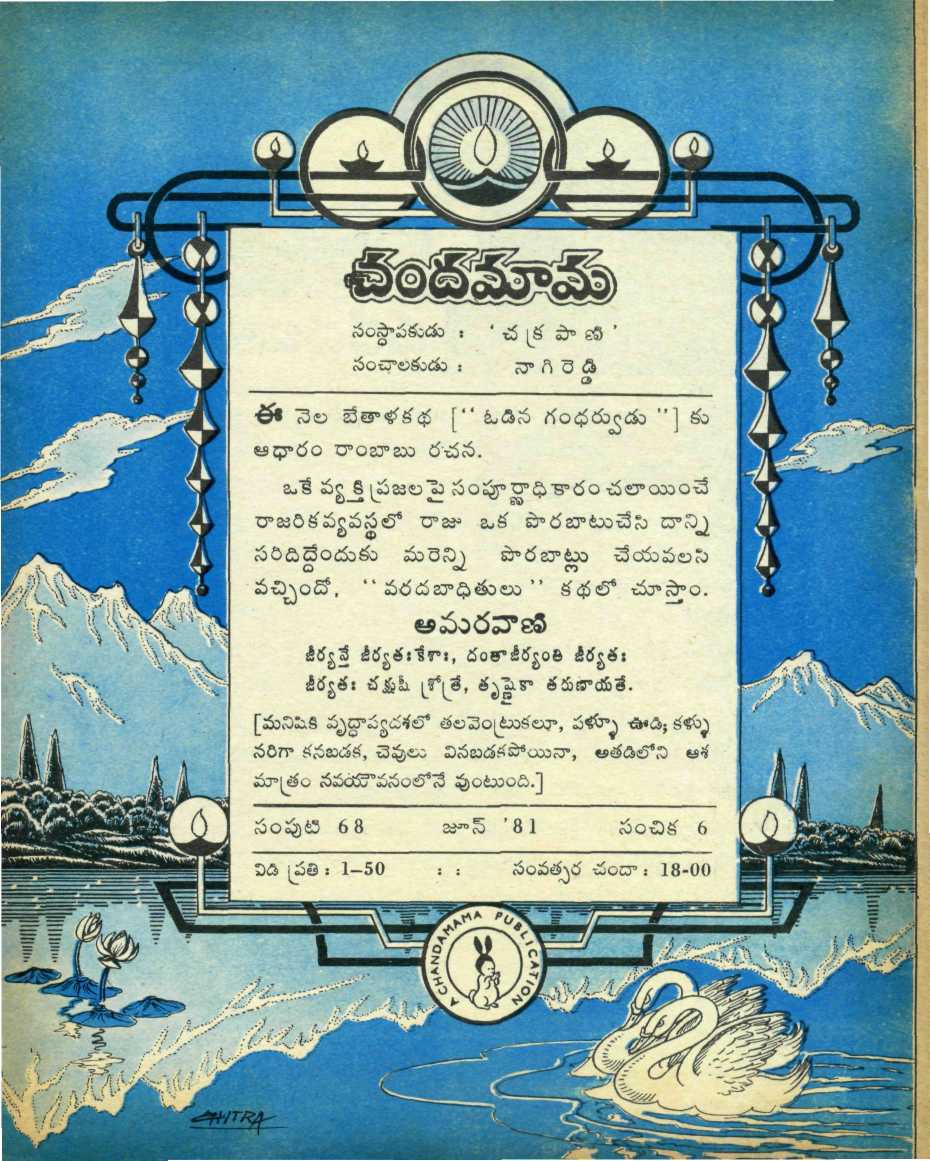 చందమామ
సంస్థాపకుడు : ' చ క్ర పా ణి '
సంచాలకుడు : నా గి రె డ్డి
ఈ నెల బేతాళకథ [" ఓడిన గంధర్వుడు "] కు
ఆధారం రాంబాబు రచన.
ఒకే వ్యక్తి ప్రజలపై సంపూర్ణాధికారం చలాయించే
రాజరికవ్యవస్థలో రాజు ఒక పొరబాటుచేసి దాన్ని
సరిదిద్దేందుకు మరెన్ని పొరబాట్లు చేయవలసి
వచ్చిందో, " వరదబాధితులు " కథలో చూస్తాం.
అమరవాణి
జీర్యన్తే జీర్యతః కేశాః, దంతా జీర్యంతి జీర్యతః
జీర్యతః చక్షుషీ శ్రోత్రే, తృష్ణైకా తరుణాయతే.
[మనిషికి వృద్ధాప్యదశలో తలవెంట్రుకలూ, పళ్ళూ ఊడి; కళ్ళు
సరిగా కనబడక, చెవులు వినబడకపోయినా, అతడిలోని ఆశ
మాత్రం నవయౌవనంలోనే వుంటుంది.]
సంపుటి 68 జూన్ '81 సంచిక 6
విడి ప్రతి : 1–50 : : సంవత్సర చందా : 18-00
A CHANDAMAMA PUBLICATION
CHITRA